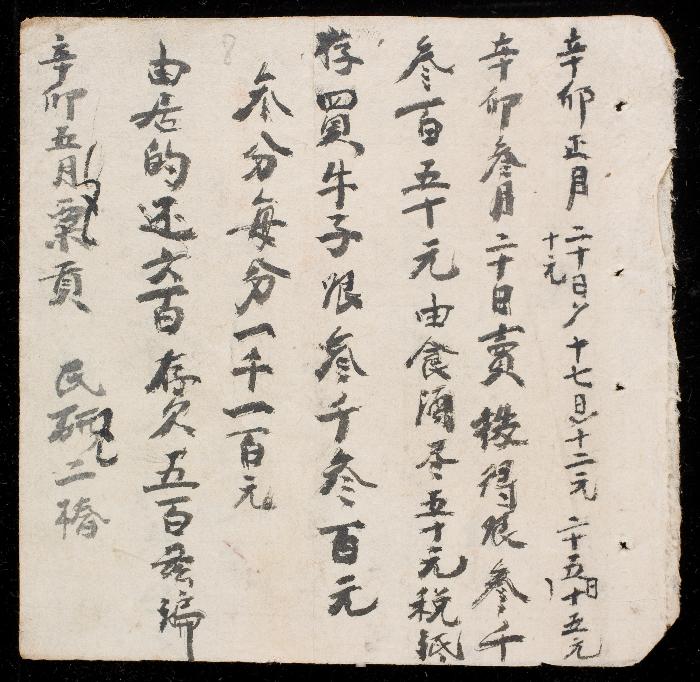 辛卯正月二十日夕十七日十二元二十五日十五元
十元
辛卯叁月二十日賣役得限叁千
叁百五十元由食酒尽五十元税纸
存買牛子限叁千叁百元
叁分每分一千一百元
由居的还六百存欠五百叁編
辛卯五月票貢 民砚二椿